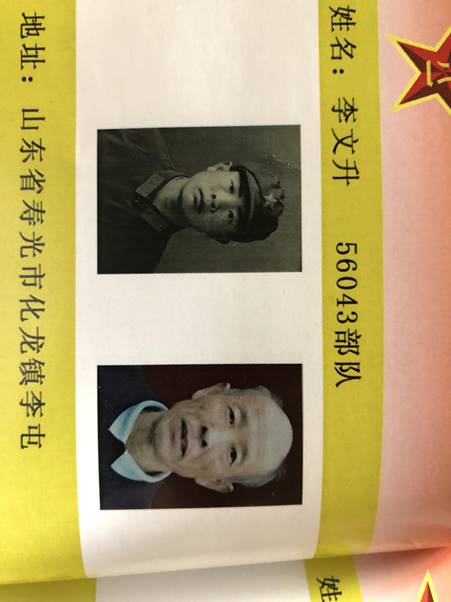 八一
姓名：李文升 56043部队
地址：山东省寿光市化龙镇李屯
姓